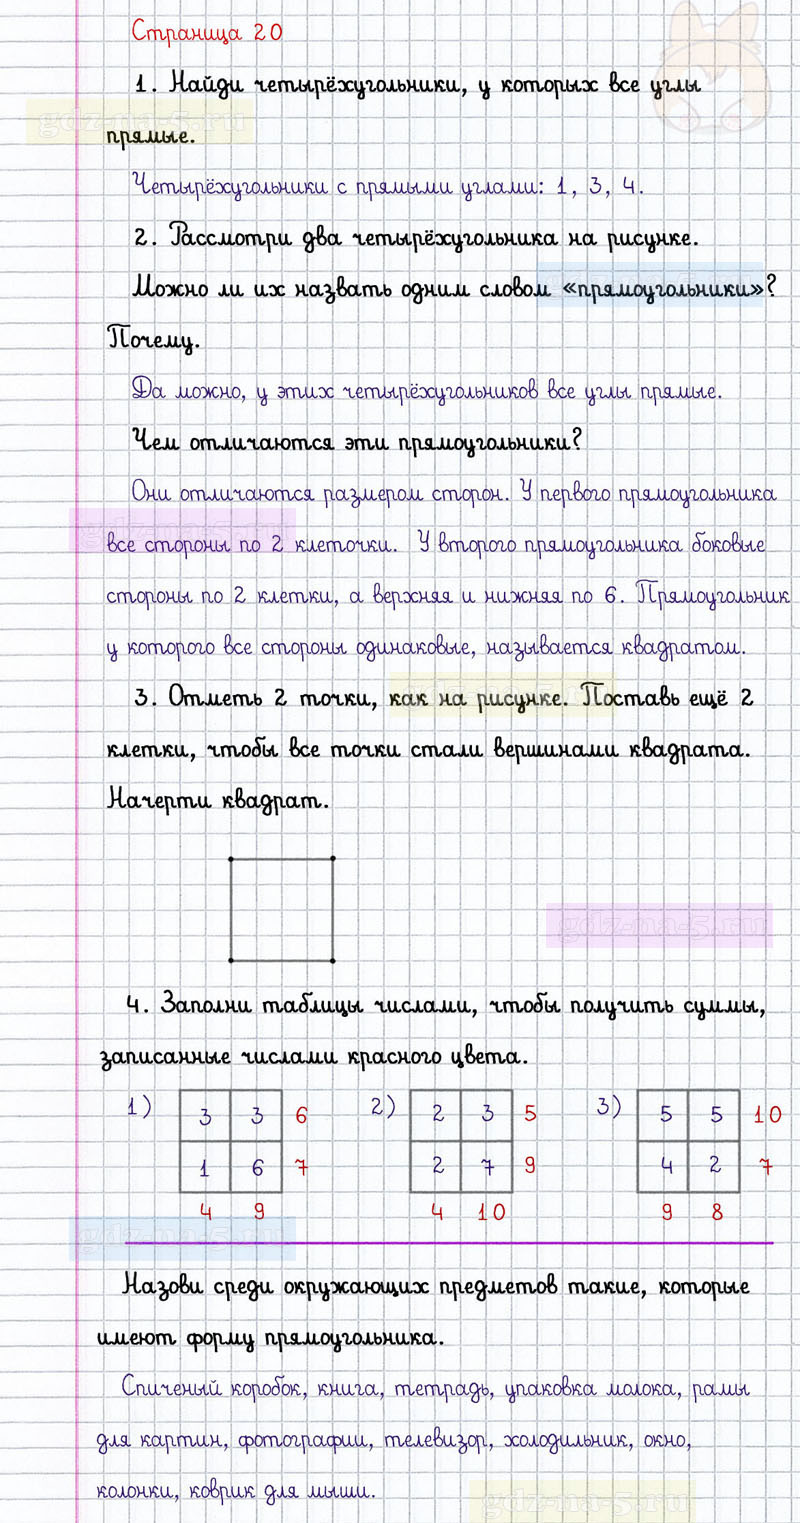 Страница 20
1. Найди четырёхугольники, у которых все углы
gdz-na-5.ru
прямые.
Четырёхугольники с прямыми углами: 1, 3, 4.
2. Рассмотри два четырёхугольника на рисунке.
Можно ли их назвать одним словом «прямоугольники»?
Почему.
Да можно, у этих четырёхугольников все углы прямые.
Чем отличаются эти прямоугольники?
Они отличаются размером сторон. У первого прямоугольника
gdz-na-5.ru
все стороны по 2 клеточки. У второго прямоугольника боковые
стороны по 2 клетки, а верхняя и нижняя по 6. Прямоугольник
у которого все стороны одинаковые, называется квадратом.
3. Отметь 2 точки, как на рисунке. Поставь ещё 2
клетки, чтобы все точки стали вершинами квадрата.
Начерти квадрат.
gdz-na-5.ru
4. Заполни таблицы числами, чтобы получить суммы,
записанные числами красного цвета.
1) 3 3 6 2) 2 3 5 3) 5 5 10
1 6 7 2 7 9 4 2 7
4 9 4 10 9 8
gdz-na-5.ru
Назови среди окружающих предметов такие, которые
имеют форму прямоугольника.
Спиченый коробок, книга, тетрадь, упаковка молока, рамы
для картин, фотографии, телевизор, холодильник, окно,
колонки, коврик для мыши.
gdz-na-5.ru